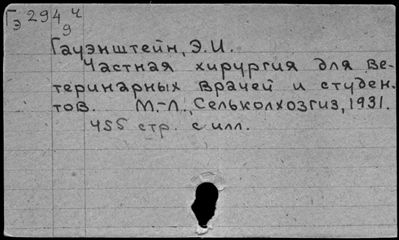 Гэ 294 ч
9
Гауэнштейн, Э.И.
Частная хирургия для ве-
теринарных врачей и студен-
тов. М.-Л., Сельколхозгиз, 1931.
455 стр. с илл.